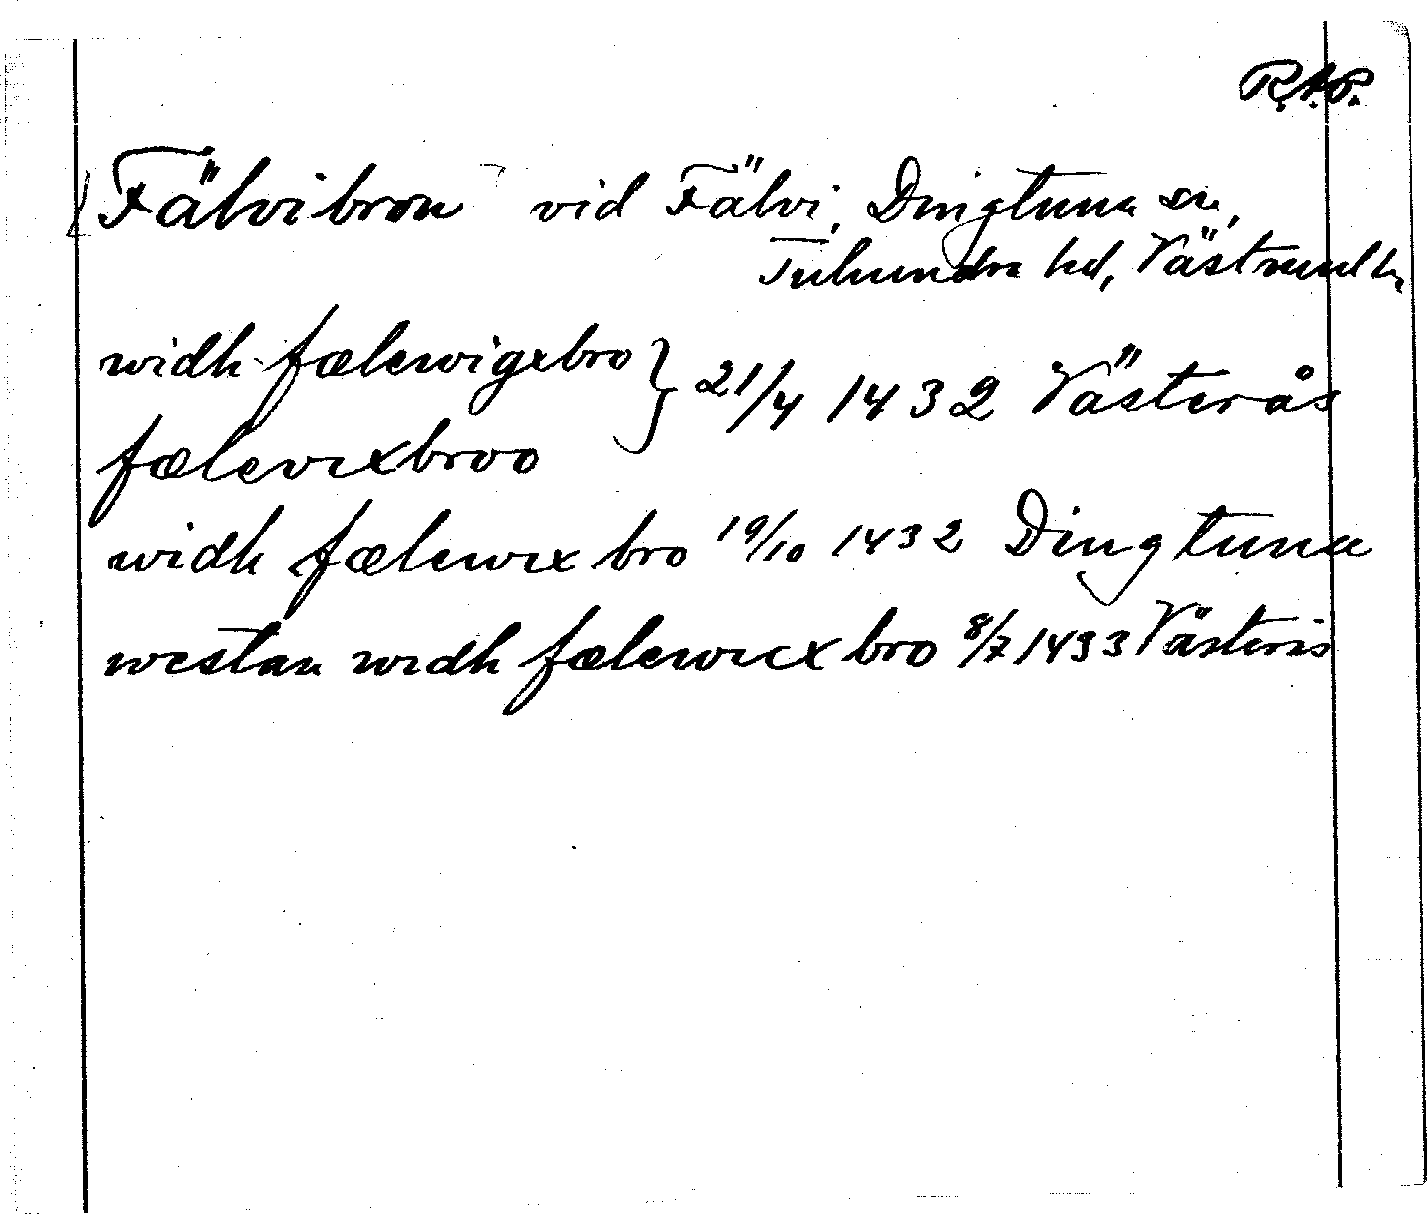 R.A.P.
Fälvibron vid Fälvi, Dingtuna sn,
Tuhundra hd, Västmanl.
widh fælewigxbro } 21/4 1432 Västerås
fælevixbroo
widh fælewix bro 19/10 1432 Dingtuna
westan widh fælewicx bro 8/7 1433 Västerås